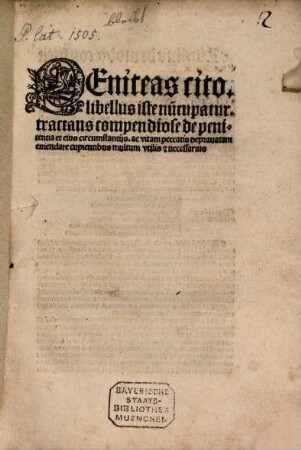 P. lat. 1505.
2
PEniteas cito.
libellus iste nūcupatur.
tractans compendiose de peni-
tencia et eius circumstantijs. ac vitam peccatis depravatam
emendare cupientibus multum vtilis ⁊ necessarius
BAYERISCHE
STAATS-
BIBLIOTHEK
MUENCHEN